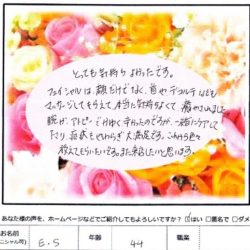 とっても気持ちよかったです。
フェイシャルは、顔だけでなく、首やデコルテなども
マッサージしてもらえて、本当に気持ちなくて癒やされました
腕が、アトピーでかゆくて辛かったのですが、一緒にケアして
たり、症状もやわらぎ大満足です。これからも色々
教えてもらいたいです。また来店したいと思います。
あなた様の声を、ホームページなどでご紹介してもよろしいですか?
はい □匿名で □ダメ
お名前
ニシャル可)
E.S
年齢
44
職業